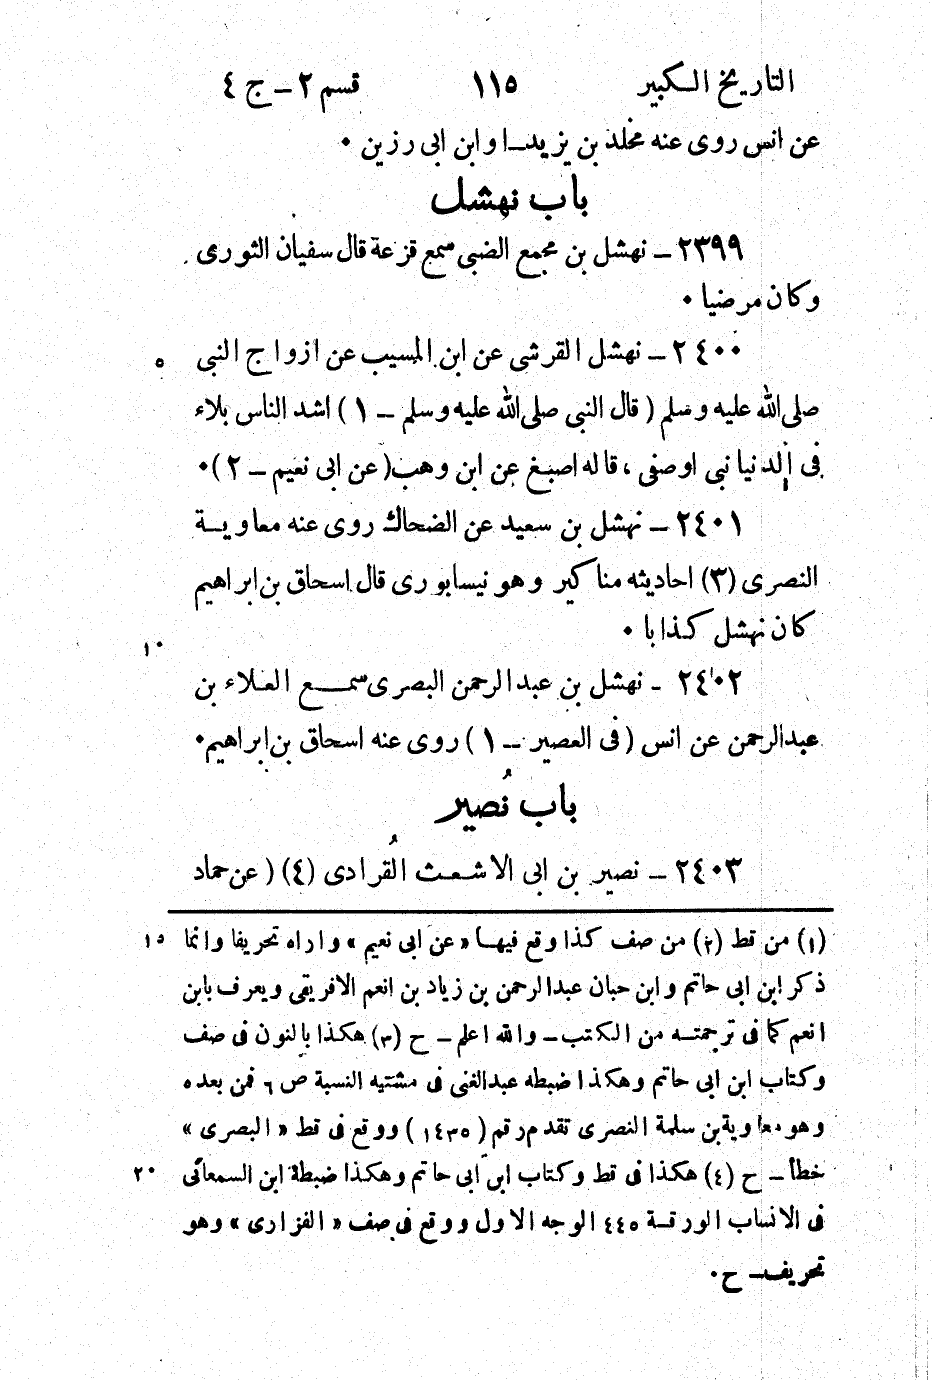 التاريخ الكبير ١١٥ قسم ٢ - ج ٤
عن انس روى عنه مخلد بن يزيد ا وابن ابى رزين ٠
باب نهشل
٢٣٩٩ - نهشل بن مجمع الضبى سمع قزعة قال سفيان الثورى
وكان مرضيا ٠
٢٤٠٠ - نهشل القرشى عن ابن المسيب عن ازواج النبى ٥
صلى الله عليه وسلم ( قال النبى صلى الله عليه وسلم - ١ ) اشد الناس بلاء
فى الدنيا نبى اوصفى ، قاله اصبغ عن ابن وهب ( عن ابى نعيم - ٢ ) ٠
٢٤٠١ - نهشل بن سعيد عن الضحاك روى عنه معاوية
النصرى (٣) احاديثه مناكير وهو نيسابورى قال اسحاق بن ابراهيم
كان نهشل كذابا ٠
١٠
٢٤٠٢ - نهشل بن عبد الرحمن البصرى سمع العلاء بن
عبد الرحمن عن انس ( فى العصير - ١ ) روى عنه اسحاق بن ابراهيم ٠
باب نُصير
٢٤٠٣ - نصير بن ابى الاشعث القُرادى (٤) ( عن حماد
(١) من قط (٢) من صف كذا وقع فيها « عن ابى نعيم » واراه تحريفا وانما ١٥
ذكر ابن ابى حاتم وابن حبان عبد الرحمن بن زياد بن انعم الافريقى ويعرف بابن
انعم كما فى ترجمته من الكتب - والله اعلم - ح (٣) هكذا بالنون فى صف
وكتاب ابن ابى حاتم وهكذا ضبطه عبد الغنى فى مشتبه النسبة ص ٦ فمن بعده
وهو معاوية بن سلمة النصرى تقدم رقم ( ١٤٣٥ ) ووقع فى قط « البصرى »
خطأ - ح (٤) هكذا فى قط وكتاب ابن ابى حاتم وهكذا ضبطة ابن السمعانى ٢٠
فى الانساب الورقة ٤٤٥ الوجه الاول ووقع فى صف « الفزارى » وهو
تحريف - ح ٠